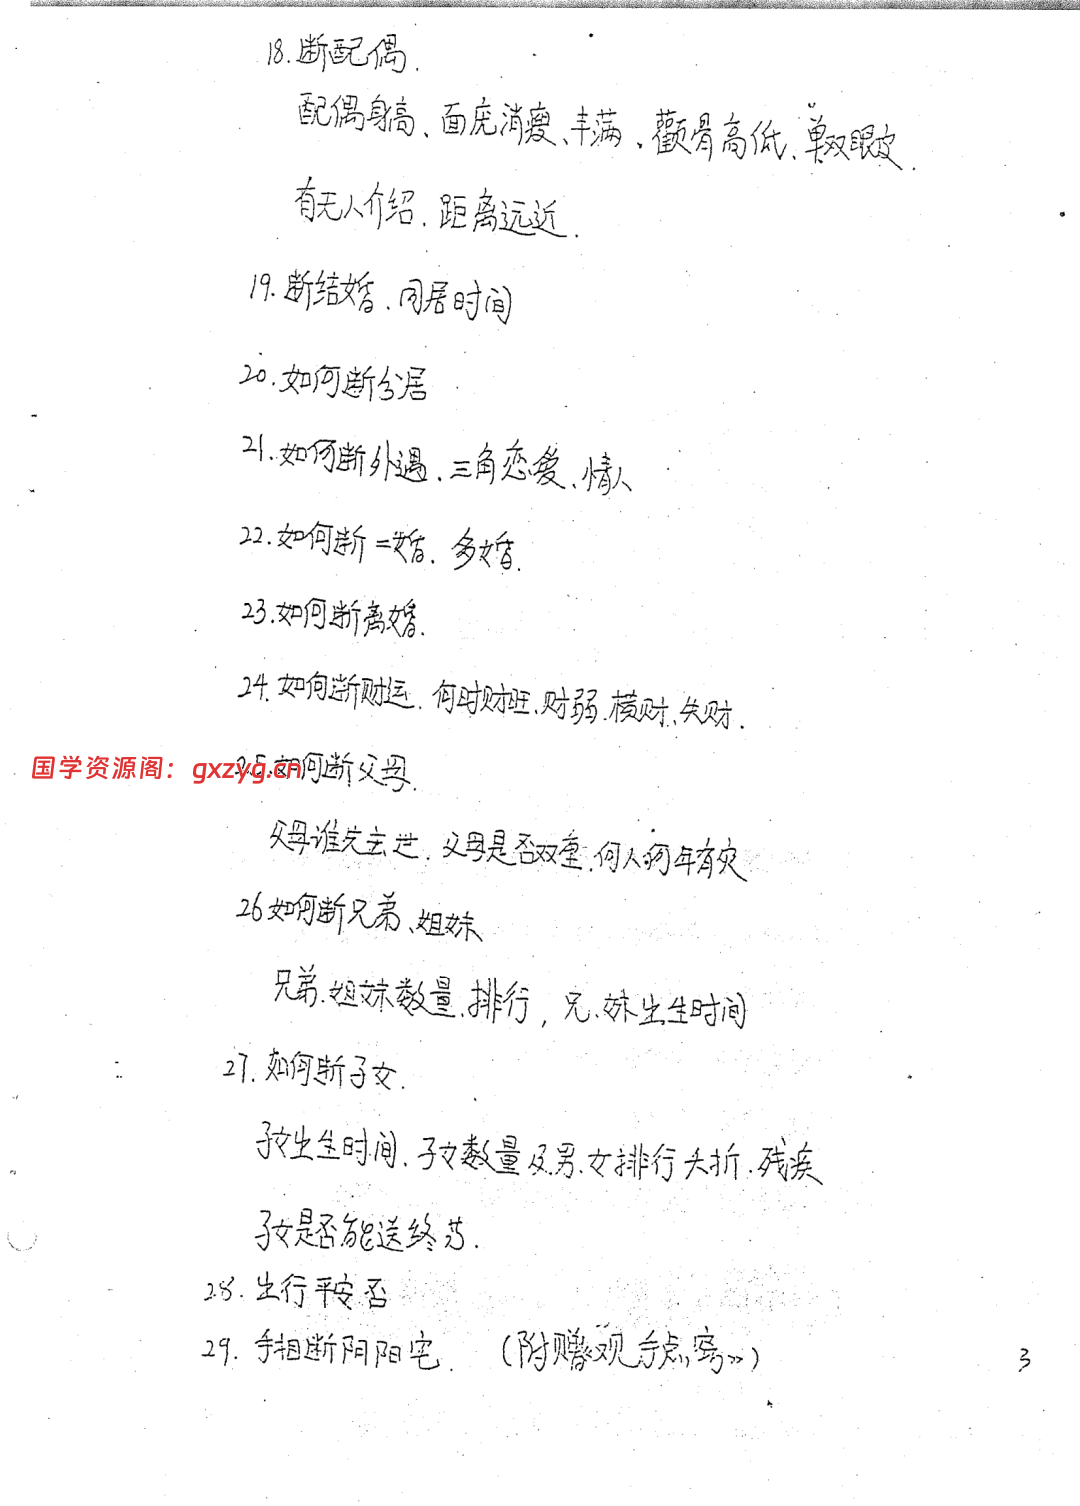 18.断配偶.
配偶身高、面庞消瘦、丰满、颧骨高低、单双眼皮.
有无人介绍.距离远近.
19.断结婚.同居时间
20.如何断分居
21.如何断外遇、三角恋爱、情人
22.如何断二婚.多婚.
23.如何断离婚.
24.如何断财运.何时财旺.财弱.横财、失财.
国学资源阁：gxzyg.cn
25.如何断父母.
父母谁先去世.父母是否双重.何人何年有灾
26如何断兄弟、姐妹
兄弟.姐妹数量.排行,兄.妹出生时间
27.如何断子女.
子女出生时间.子女数量及男.女排行夭折.残疾
子女是否能送终等.
28.出行平安否
29.手相断阴阳宅. (附赠《观手点窍》)
3